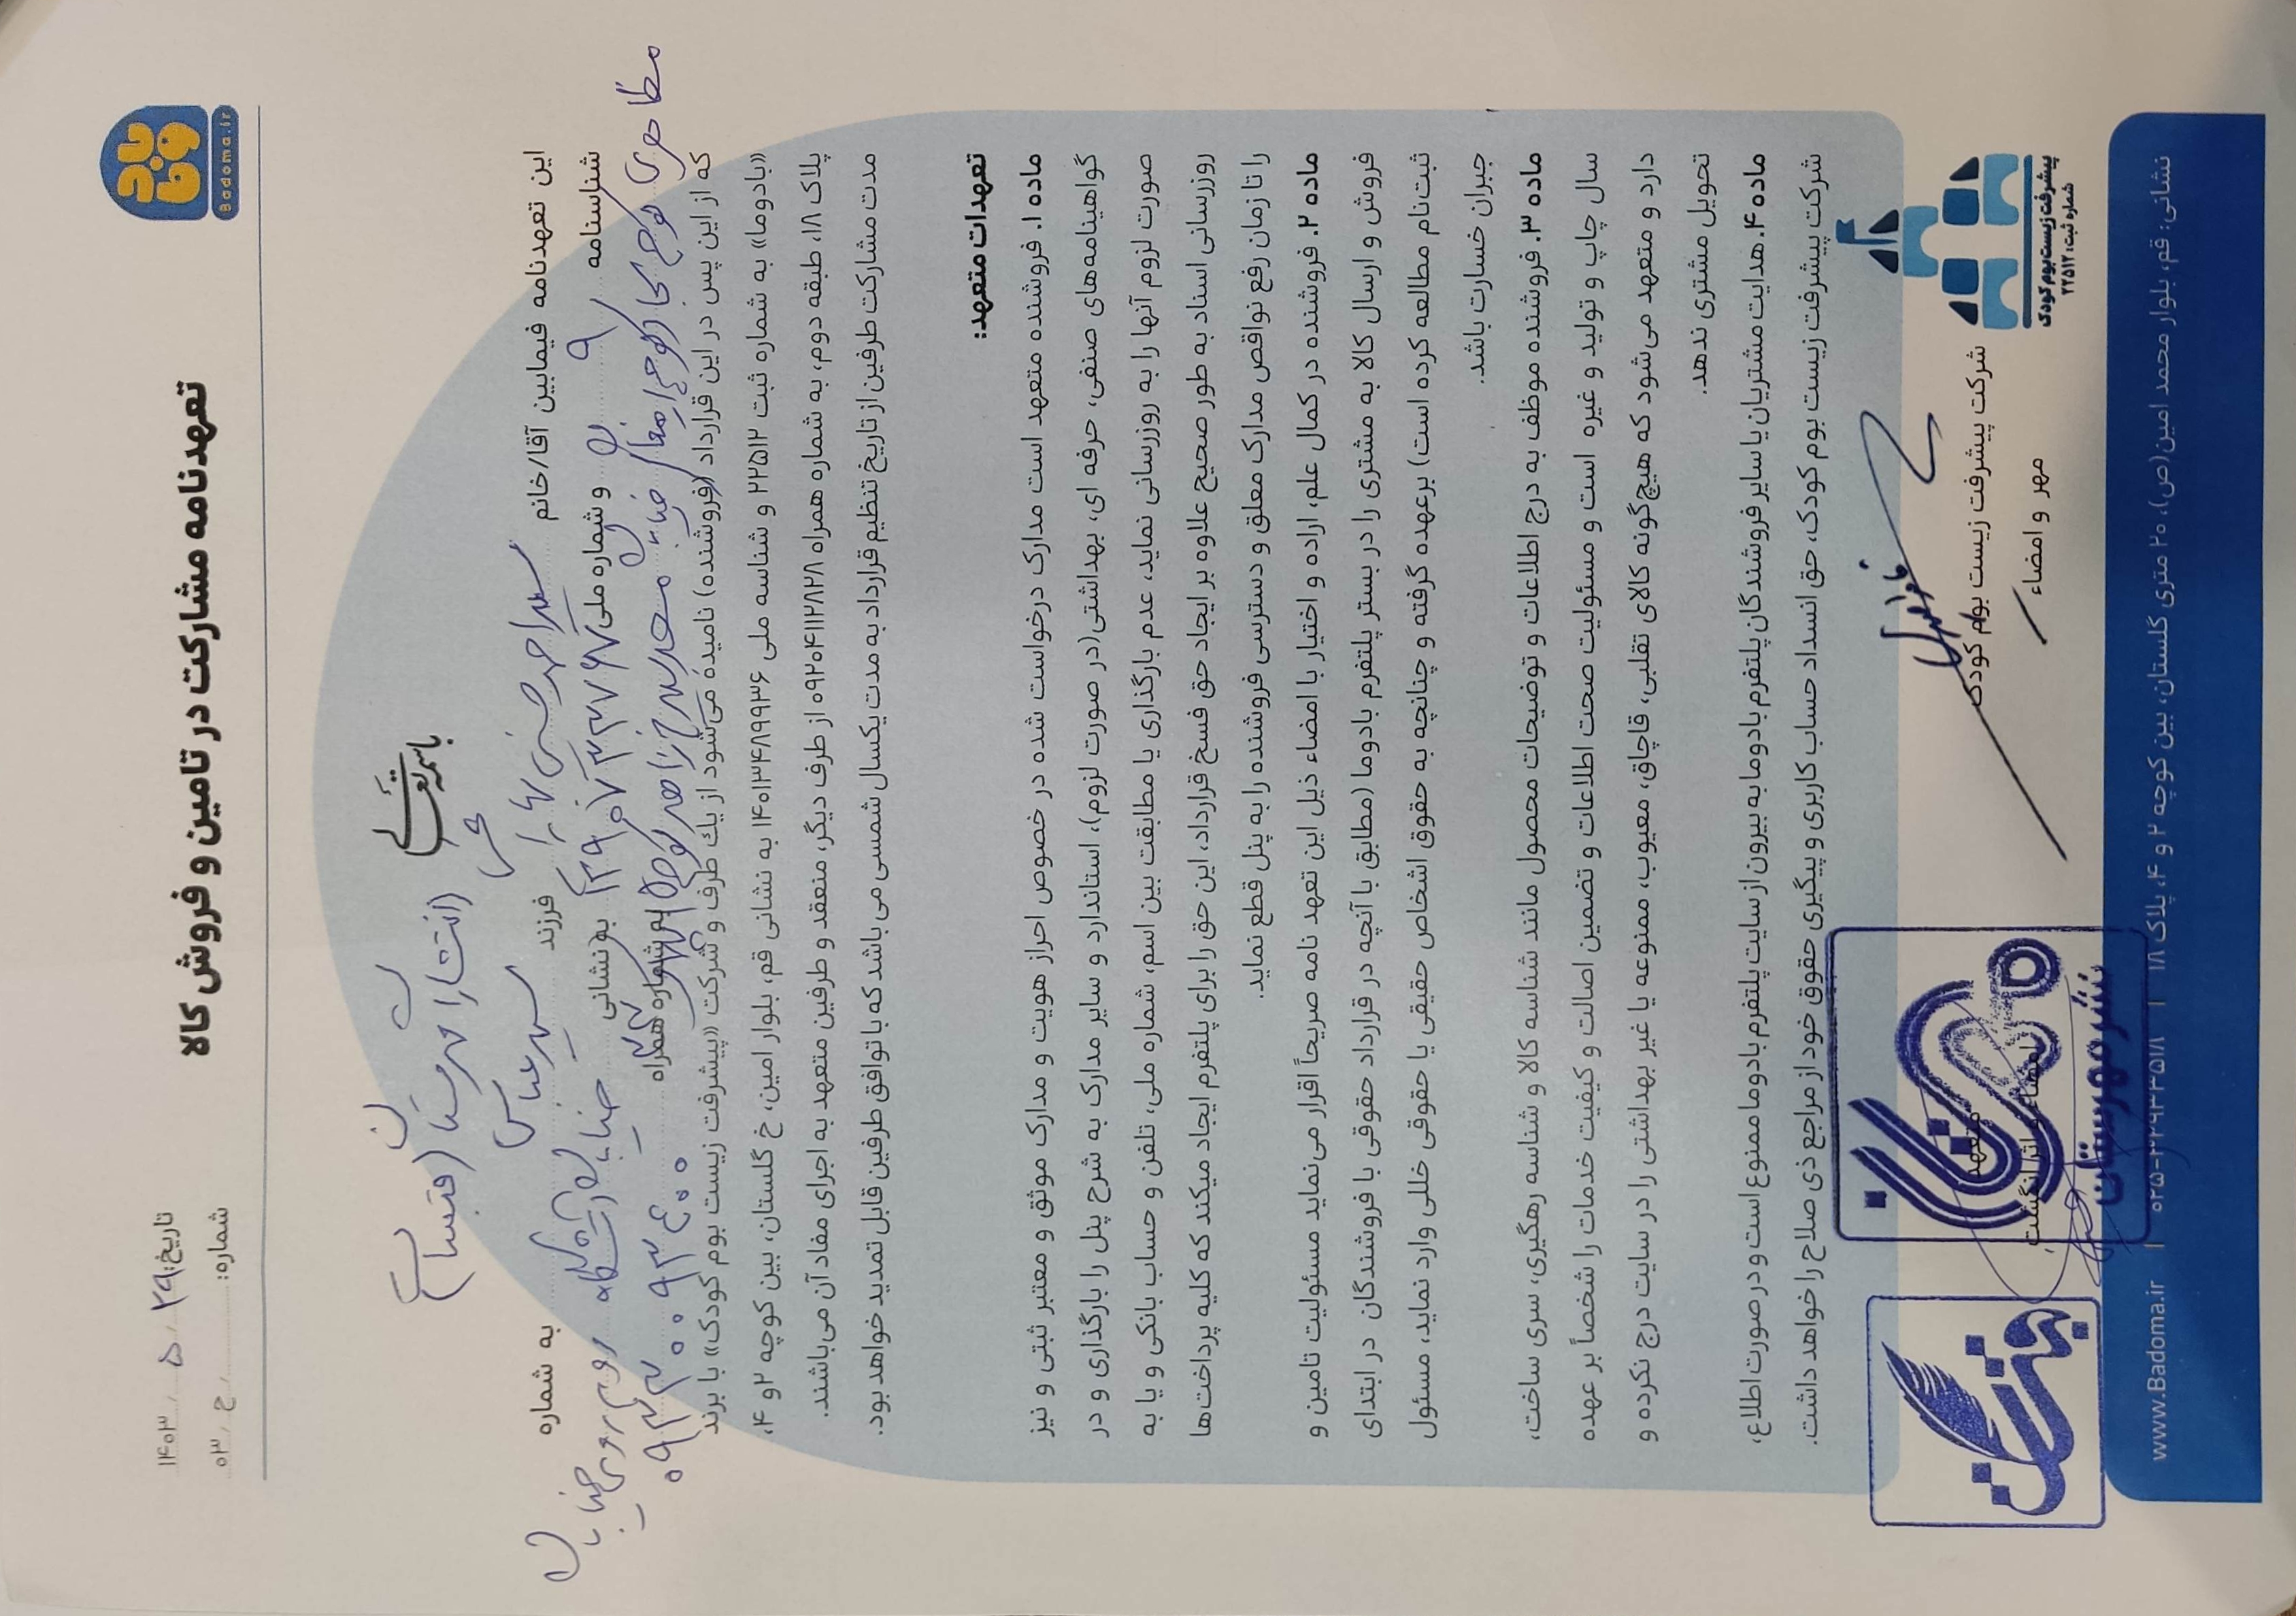 باد و ما
Badoma.ir
تعهدنامه مشارکت در تامین و فروش کالا
تاریخ: ۱۴۰۳ / ۵ / ۲۹
شماره: ۰۳ / ع /
باسمه تعالی
این تعهدنامه فیمابین آقا/خانم سید احمد حسینی فرزند سید عباس به شماره
شناسنامه ۹ و شماره ملی به نشانی
به شماره همراه
که از این پس در این قرارداد (فروشنده) نامیده می‌شود از یك طرف و شرکت «پیشرفت زیست بوم کودک» با برند
«بادوما» به شماره ثبت ۲۲۵۱۲ و شناسه ملی ۱۴۰۱۳۴۸۹۹۳۶ به نشانی قم، بلوار امین، خ گلستان، بین کوچه ۲ و ۴،
پلاک ۱۸، طبقه دوم، به شماره همراه ۰۹۲۰۴۱۱۲۸۲۸ از طرف دیگر، منعقد و طرفین متعهد به اجرای مفاد آن می‌باشند.
مدت مشارکت طرفین از تاریخ تنظیم قرارداد به مدت یکسال شمسی می باشد که با توافق طرفین قابل تمدید خواهد بود.
تعهدات متعهد:
ماده ۱. فروشنده متعهد است مدارک درخواست شده در خصوص احراز هویت و مدارک موثق و معتبر ثبتی و نیز
گواهینامه‌های صنفی، حرفه ای، بهداشتی(در صورت لزوم)، استاندارد و سایر مدارک به شرح پنل را بارگذاری و در
صورت لزوم آنها را به روزرسانی نماید، عدم بارگذاری یا مطابقت بین اسم، شماره ملی، تلفن و حساب بانکی و یا به
روزرسانی اسناد به طور صحیح علاوه بر ایجاد حق فسخ قرارداد، این حق را برای پلتفرم ایجاد میکند که کلیه پرداخت‌ها
را تا زمان رفع نواقص مدارک معلق و دسترسی فروشنده را به پنل قطع نماید.
ماده ۲. فروشنده در کمال علم، اراده و اختیار با امضاء ذیل این تعهد نامه صریحاً اقرار می‌نماید مسئولیت تامین و
فروش و ارسال کالا به مشتری را در بستر پلتفرم بادوما (مطابق با آنچه در قرارداد حقوقی با فروشندگان در ابتدای
ثبت‌نام مطالعه کرده است) برعهده گرفته و چنانچه به حقوق اشخاص حقیقی یا حقوقی خللی وارد نماید، مسئول
جبران خسارت باشد.
ماده ۳. فروشنده موظف به درج اطلاعات و توضیحات محصول مانند شناسه کالا و شناسه رهگیری، سری ساخت،
سال چاپ و تولید و غیره است و مسئولیت صحت اطلاعات و تضمین اصالت و کیفیت خدمات را شخصاً بر عهده
دارد و متعهد می‌شود که هیچ‌گونه کالای تقلبی، قاچاق، معیوب، ممنوعه یا غیر بهداشتی را در سایت درج نکرده و
تحویل مشتری ندهد.
ماده ۴. هدایت مشتریان یا سایر فروشندگان پلتفرم بادوما به بیرون از سایت پلتفرم بادوما ممنوع است و در صورت اطلاع،
شرکت پیشرفت زیست بوم کودک، حق انسداد حساب کاربری و پیگیری حقوق خود از مراجع ذی صلاح را خواهد داشت.
پیشرفت زیست بوم کودک
شماره ثبت: ۲۲۵۱۲
شرکت پیشرفت زیست بوم کودک
مهر و امضاء
متعهد
امضاء و اثر انگشت
نشر مهرستان
نشانی: قم، بلوار محمد امین(ص)، ۲۰ متری گلستان، بین کوچه ۲ و ۴، پلاک ۱۸ | ۰۲۵-۳۲۹۳۳۵۱۸ | www.Badoma.ir